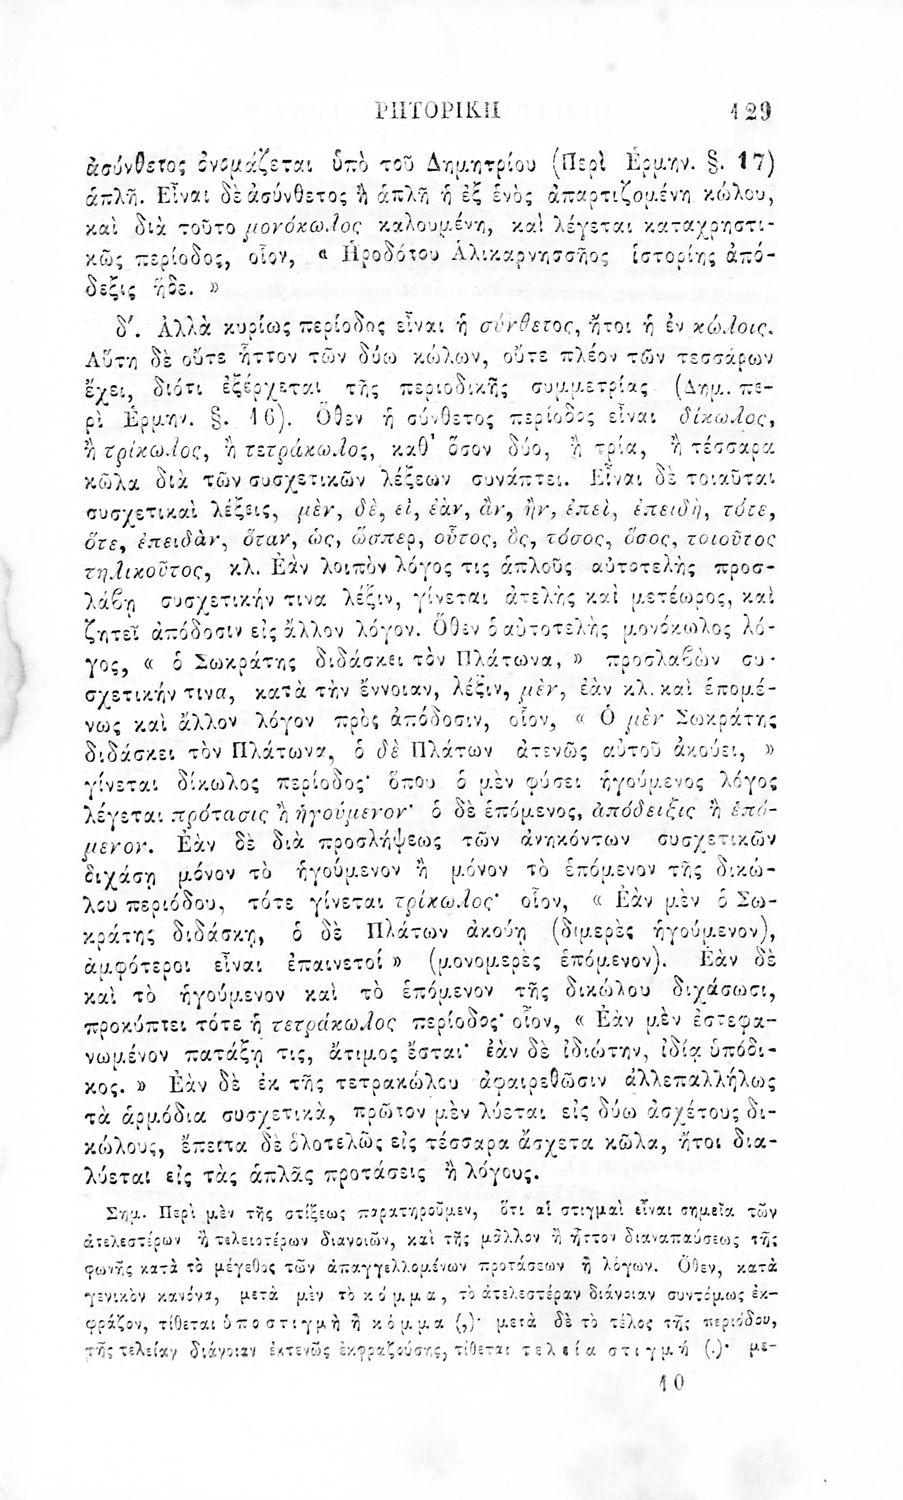 ΡΗΤΟΡΙΚΗ 129
ἀσύνθετος ὀνομάζεται ὑπὸ τοῦ Δημητρίου (Περὶ Ἑρμην. §. 17)
ἁπλῆ. Εἶναι δὲ ἀσύνθετος ἢ ἁπλῆ ἡ ἐξ ἑνὸς ἀπαρτιζομένη κώλου,
καὶ διὰ τοῦτο μονόκωλος καλουμένη, καὶ λέγεται καταχρηστι-
κῶς περίοδος, οἷον, « Ἡροδότου Ἁλικαρνησσῆος ἱστορίης ἀπό-
δεξις ἥδε. »
δ΄. Ἀλλὰ κυρίως περίοδος εἶναι ἡ σύνθετος, ἤτοι ἡ ἐν κώλοις.
Αὕτη δὲ οὔτε ἧττον τῶν δύω κώλων, οὔτε πλέον τῶν τεσσάρων
ἔχει, διότι ἐξέρχεται τῆς περιοδικῆς συμμετρίας (Δημ. πε-
ρὶ Ἑρμην. §. 16). Ὅθεν ἡ σύνθετος περίοδος εἶναι δίκωλος,
ἢ τρίκωλος, ἢ τετράκωλος, καθ' ὅσον δύο, ἢ τρία, ἢ τέσσαρα
κῶλα διὰ τῶν συσχετικῶν λέξεων συνάπτει. Εἶναι δὲ τοιαῦται
συσχετικαὶ λέξεις, μὲν, δὲ, εἰ, ἐὰν, ἂν, ἢν, ἐπεὶ, ἐπειδὴ, τότε,
ὅτε, ἐπειδὰν, ὅταν, ὡς, ὥσπερ, οὗτος, ὃς, τόσος, ὅσος, τοιοῦτος
τηλικοῦτος, κλ. Ἐὰν λοιπὸν λόγος τις ἁπλοῦς αὐτοτελὴς προσ-
λάβῃ συσχετικήν τινα λέξιν, γίνεται ἀτελὴς καὶ μετέωρος, καὶ
ζητεῖ ἀπόδοσιν εἰς ἄλλον λόγον. Ὅθεν ὁ αὐτοτελὴς μονόκωλος λό-
γος, « ὁ Σωκράτης διδάσκει τὸν Πλάτωνα, » προσλαβὼν συ-
σχετικήν τινα, κατὰ τὴν ἔννοιαν, λέξιν, μὲν, ἐὰν κλ. καὶ ἑπομέ-
νως καὶ ἄλλον λόγον πρὸς ἀπόδοσιν, οἷον, « Ὁ μὲν Σωκράτης
διδάσκει τὸν Πλάτωνα, ὁ δὲ Πλάτων ἀτενῶς αὐτοῦ ἀκούει, »
γίνεται δίκωλος περίοδος· ὅπου ὁ μὲν φύσει ἡγούμενος λόγος
λέγεται πρότασις ἢ ἡγούμενον· ὁ δὲ ἑπόμενος, ἀπόδειξις ἢ ἑπό-
μενον. Ἐὰν δὲ διὰ προσλήψεως τῶν ἀνηκόντων συσχετικῶν
διχάσῃ μόνον τὸ ἡγούμενον ἢ μόνον τὸ ἑπόμενον τῆς δικώ-
λου περιόδου, τότε γίνεται τρίκωλος· οἷον, « Ἐὰν μὲν ὁ Σω-
κράτης διδάσκῃ, ὁ δὲ Πλάτων ἀκούῃ (διμερὲς ἡγούμενον),
ἀμφότεροι εἶναι ἐπαινετοί » (μονομερὲς ἑπόμενον). Ἐὰν δὲ
καὶ τὸ ἡγούμενον καὶ τὸ ἑπόμενον τῆς δικώλου διχάσωσι,
προκύπτει τότε ἡ τετράκωλος περίοδος· οἷον, « Ἐὰν μὲν ἐστεφα-
νωμένον πατάξῃ τις, ἄτιμος ἔσται· ἐὰν δὲ ἰδιώτην, ἰδίᾳ ὑπόδι-
κος. » Ἐὰν δὲ ἐκ τῆς τετρακώλου ἀφαιρεθῶσιν ἀλλεπαλλήλως
τὰ ἁρμόδια συσχετικὰ, πρῶτον μὲν λύεται εἰς δύω ἀσχέτους δι-
κώλους, ἔπειτα δὲ ὁλοτελῶς εἰς τέσσαρα ἄσχετα κῶλα, ἤτοι δια-
λύεται εἰς τὰς ἁπλᾶς προτάσεις ἢ λόγους.
Σημ. Περὶ μὲν τῆς στίξεως παρατηροῦμεν, ὅτι αἱ στιγμαὶ εἶναι σημεῖα τῶν
ἀτελεστέρων ἢ τελειοτέρων διανοιῶν, καὶ τῆς μᾶλλον ἢ ἧττον διαναπαύσεως τῆς
φωνῆς κατὰ τὸ μέγεθος τῶν ἀπαγγελλομένων προτάσεων ἢ λόγων. Ὅθεν, κατὰ
γενικὸν κανόνα, μετὰ μὲν τὸ κόμμα, τὸ ἀτελεστέραν διάνοιαν συντόμως ἐκ-
φράζον, τίθεται ὑποστιγμὴ ἢ κόμμα (,)· μετὰ δὲ τὸ τέλος τῆς περιόδου,
τῆς τελείαν διάνοιαν ἐκτενῶς ἐκφραζούσης, τίθεται τελεία στιγμή (.)· με-
10